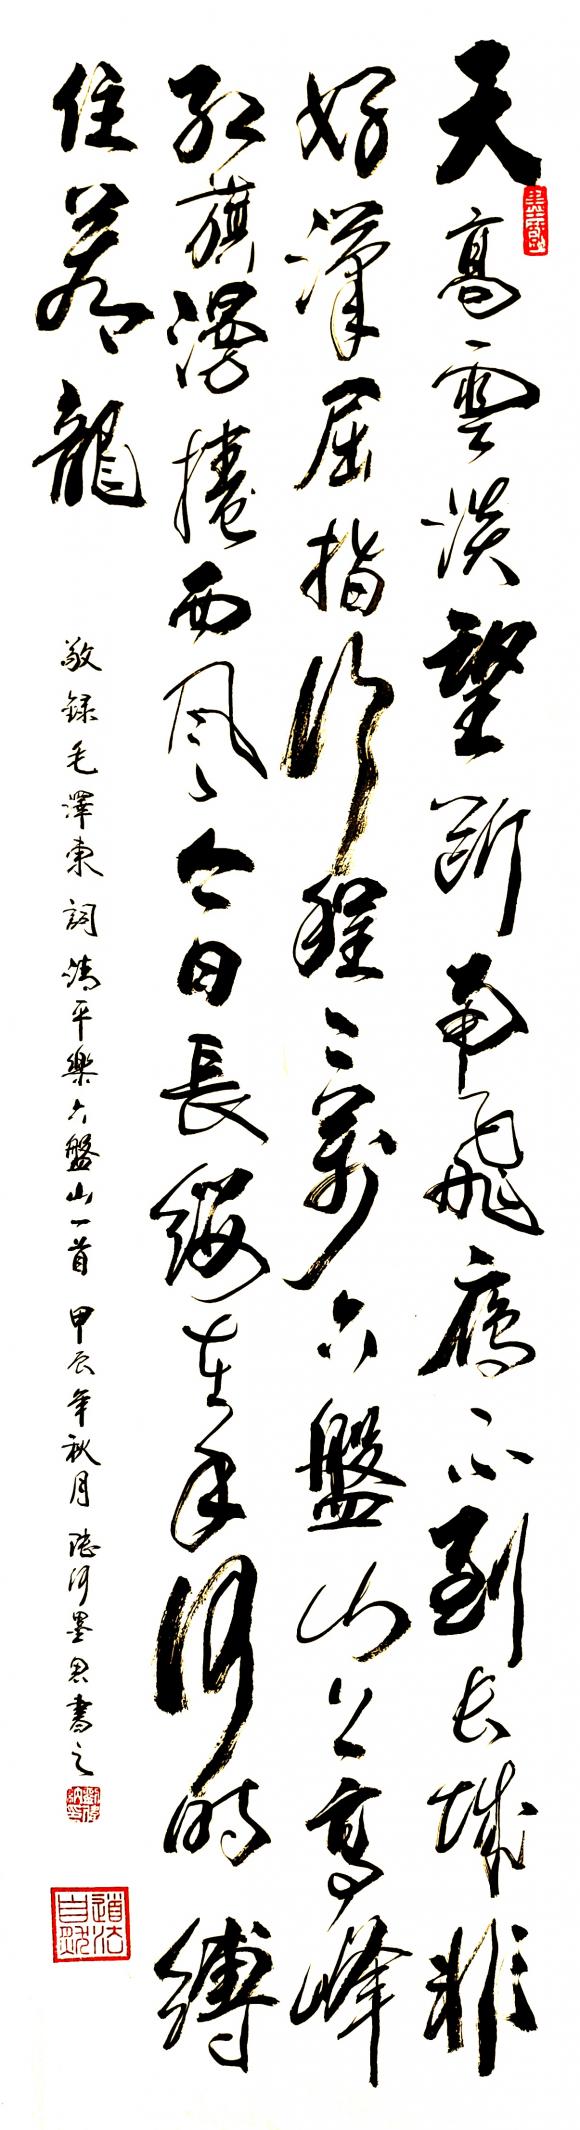 天高雲淡望斷南飛鴈不到長城非
好漢屈指行程二萬六盤山上高峰
紅旗漫捲西風今日長纓在手何時縛
住蒼龍
敬録毛澤東詞清平樂六盤山一首 甲辰年秋月 河墨書之
道法自然